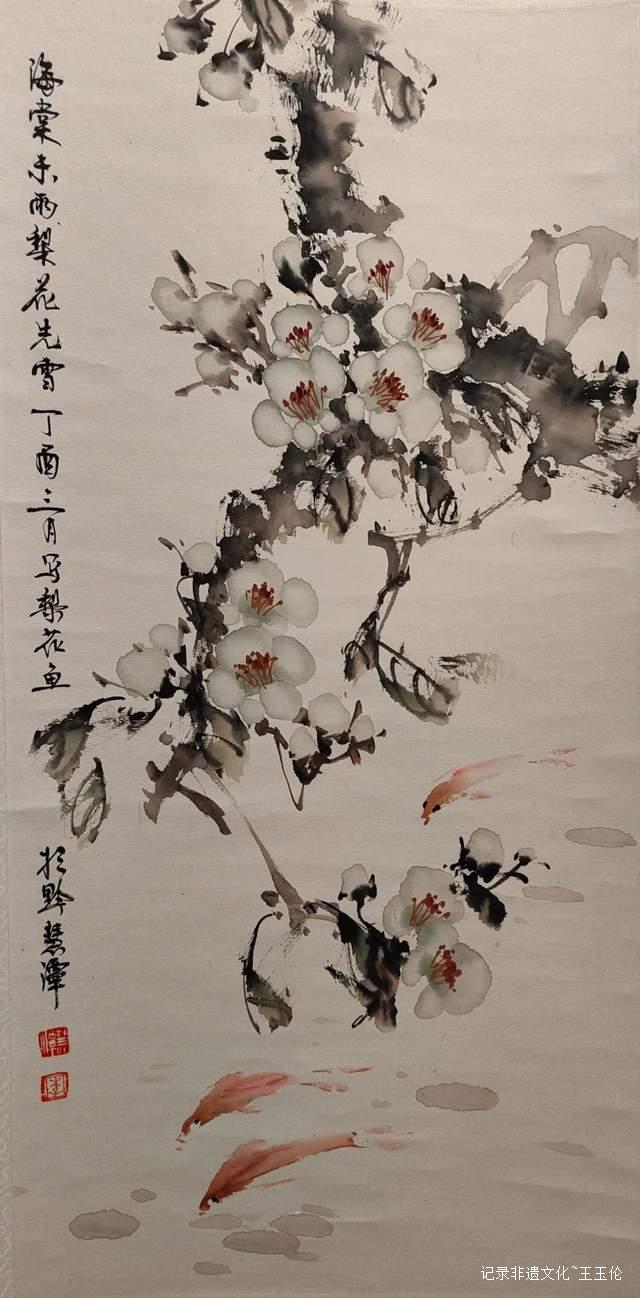 海棠未雨梨花先雪丁酉三月写梨花鱼
于黔慧潭
记录非遗文化~王玉伦